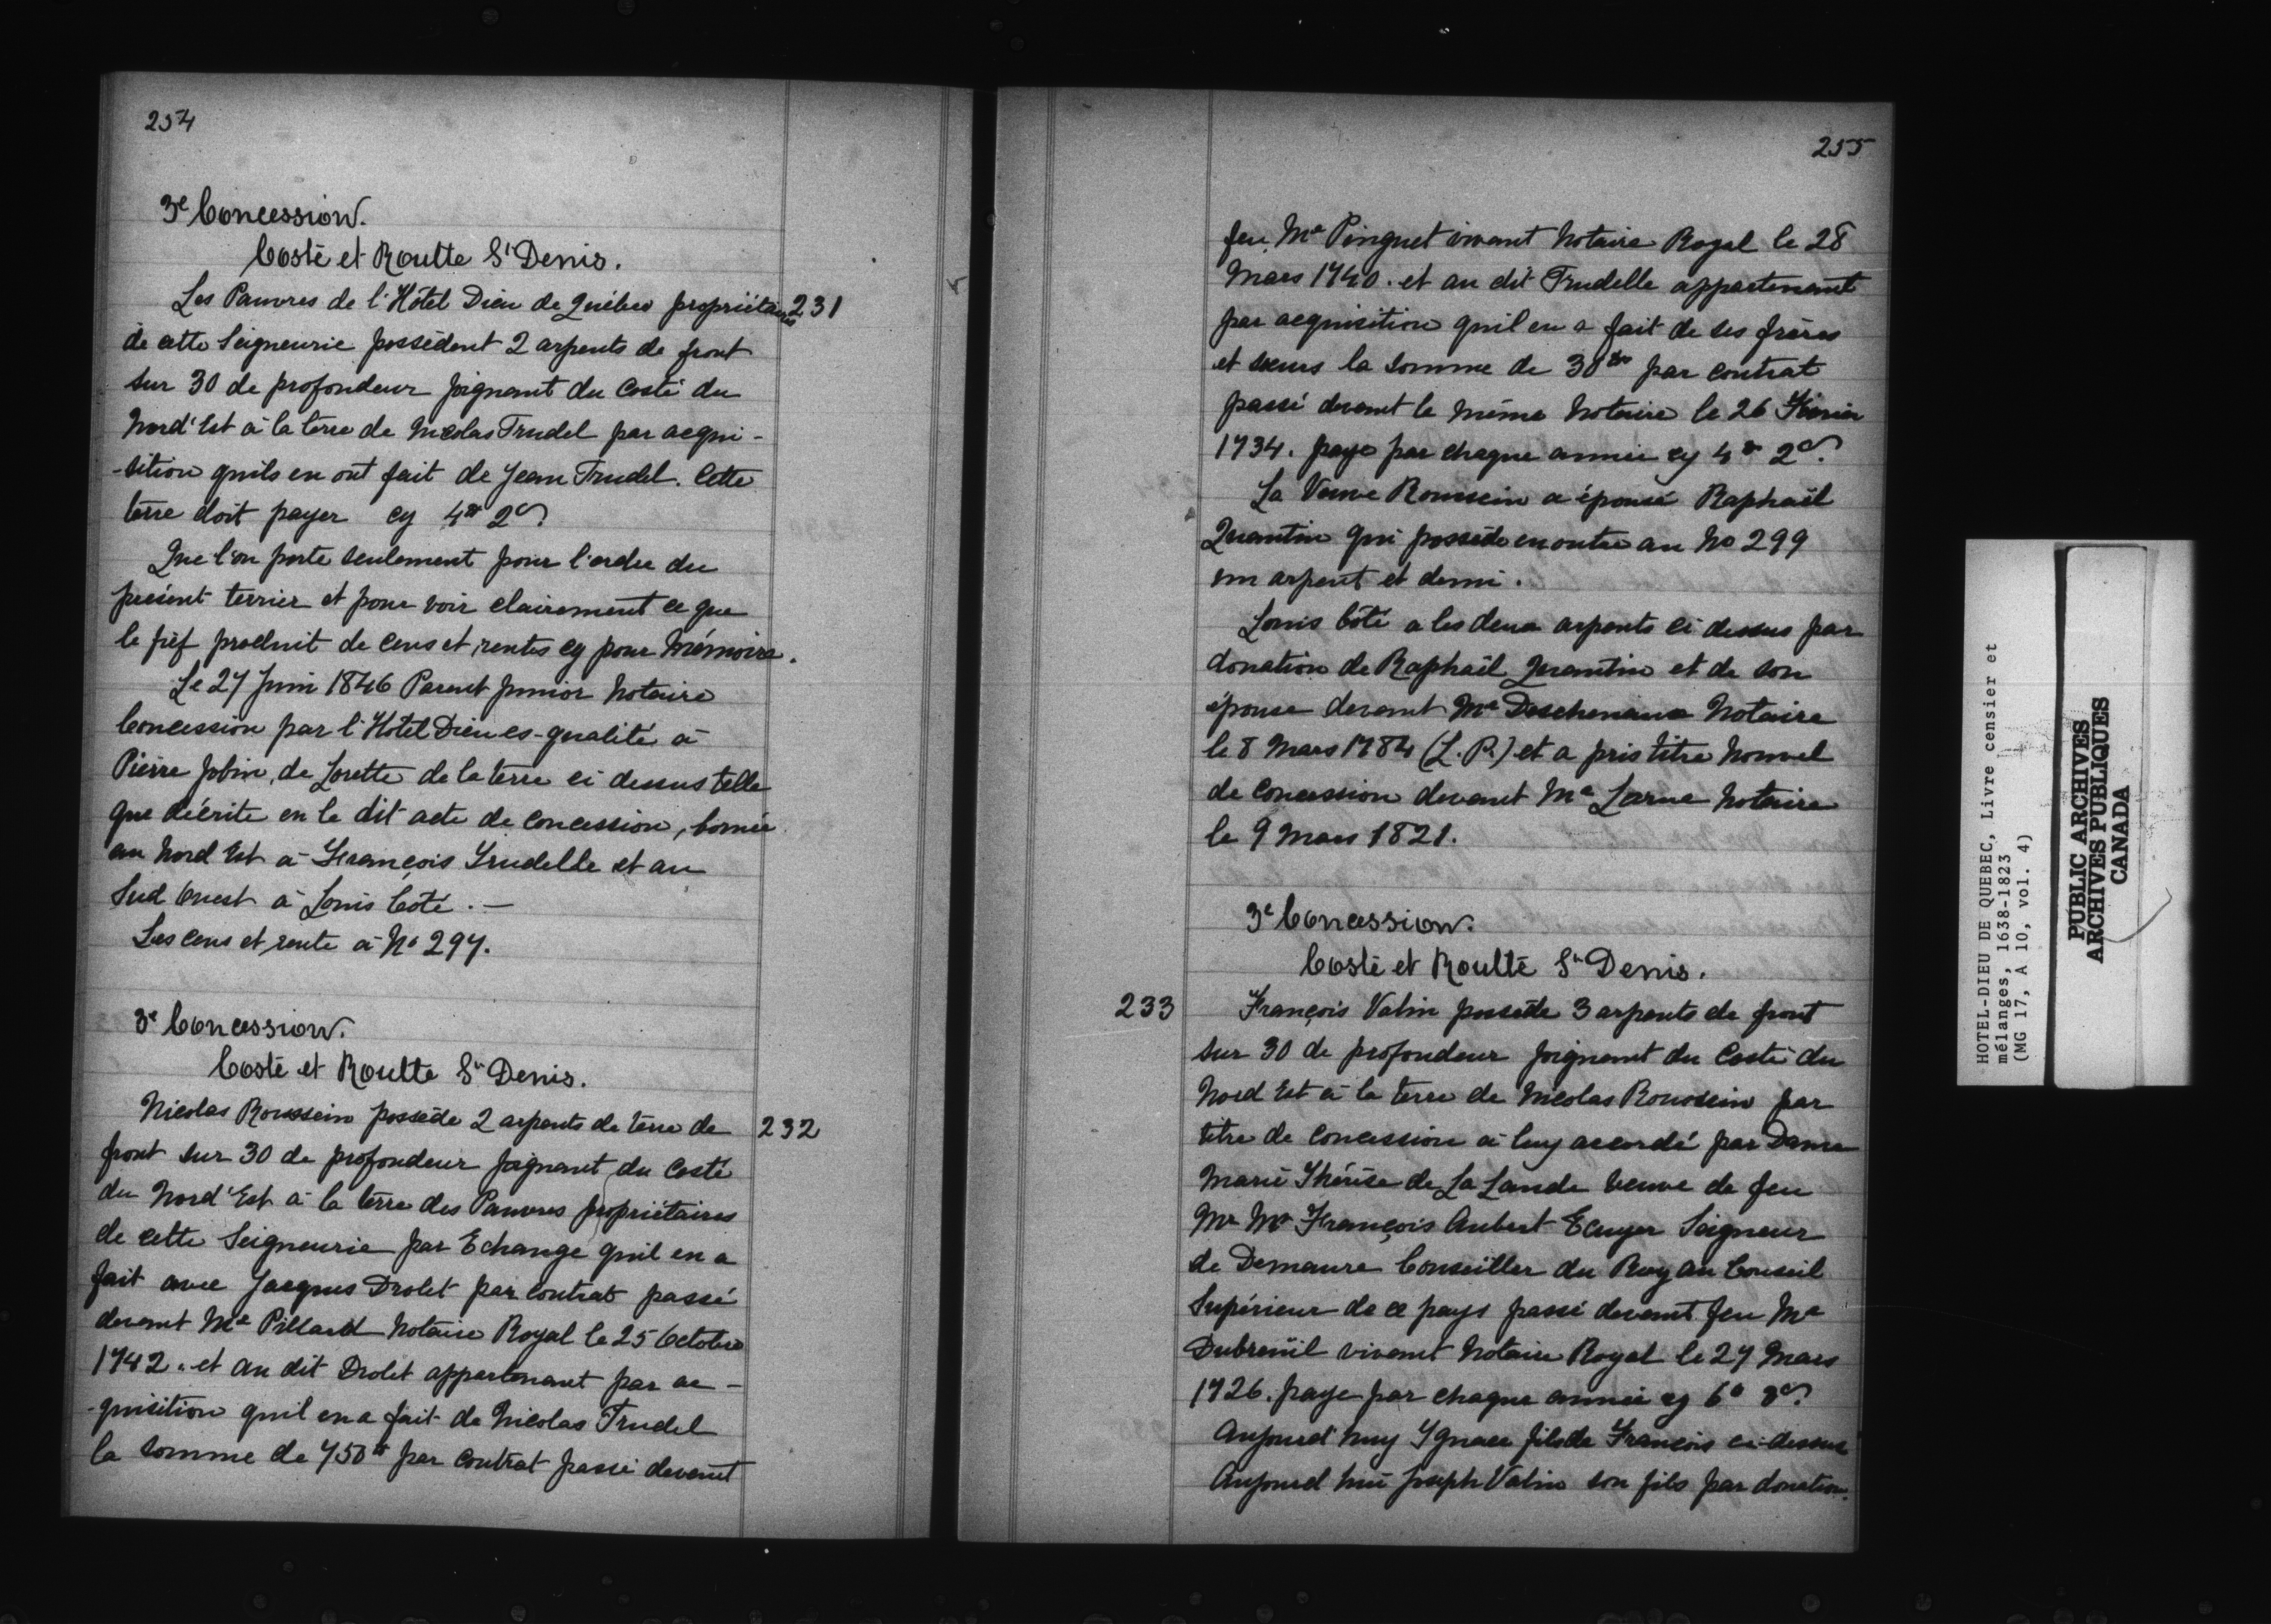 254
3e Concession.
Costé et Routte St Denis.
Les Pauvres de l'Hôtel Dieu de Québec propriétaires 231
de cette Seigneurie possèdent 2 arpents de front
sur 30 de profondeur joignant du Costé du
Nord'Est à la terre de Nicolas Trudel par acqui-
-sition quils en ont fait de Jean Trudel. Cette
terre doit payer cy 4# 2s
Que l'on porte seulement pour l'ordre du
présent terrier et pour voir clairement ce que
le fief produit de cens et rentes cy pour Mémoire.
Le 27 Juin 1846 Parent Junior Notaire
Concession par l'Hotel Dieu es-qualité à
Pierre Jobin, de Lorette de la terre ci dessus telle
que décrite en le dit acte de concession, bornée
au Nord Est à François Trudelle et au
Sud Ouest à Louis Coté. —
Les cens et rente à No 297.
3e Concession.
Costé et Routte St Denis.
Nicolas Roussein possède 2 arpents de terre de 232
front sur 30 de profondeur joignant du Costé
du Nord'Est à la terre des Pauvres propriétaires
de cette Seigneurie par Echange quil en a
fait avec Jacques Drolet par Contrat passé
devant Me Pillard Notaire Royal le 25 Octobre
1742. et au dit Drolet appartenant par ac-
-quisition quil en a fait de Nicolas Trudel
la somme de 750# par contrat passé devant
255
feu Me Pinguet vivant Notaire Royal le 28
Mars 1740. et au dit Trudelle appartenant
par acquisition quil en a fait de ses frères
et sœurs la somme de 30# par contrat
passé devant le même Notaire le 26 Février
1734. paye par chaque année cy 4# 2s
La Veuve Roussein a épousé Raphaël
Quantin qui possède en outre au No 299
un arpent et demi.
Louis Côté a les deux arpents ci dessus par
donation de Raphaël Quantin et de son
épouse devant Me Deschenaux Notaire
le 8 Mars 1784 (L. P.) et a pris titre Nouvel
de Concession devant Me Larue Notaire
le 9 Mars 1821.
3e Concession.
Costé et Routté St Denis.
233 François Valin possède 3 arpents de front
sur 30 de profondeur joignant du Costé du
Nord Est à la terre de Nicolas Roussein par
titre de concession à luy accordé par Dame
Marie Thérèse de La Lande veuve de feu
Mr Me François Aubert Ecuyer Seigneur
de Demaure Conseiller du Roy au Conseil
Supérieur de ce pays passé devant feu Me
Dubreüil vivant Notaire Royal le 27 Mars
1726. paye par chaque année cy 6# 3s
Aujourd'huy Ygnace fils de François ci-dessus
Aujourd hui Joseph Valin son fils par donation.
HOTEL-DIEU DE QUEBEC, Livre censier et
mélanges, 1638-1823
(MG 17, A 10, vol. 4)
PUBLIC ARCHIVES
ARCHIVES PUBLIQUES
CANADA